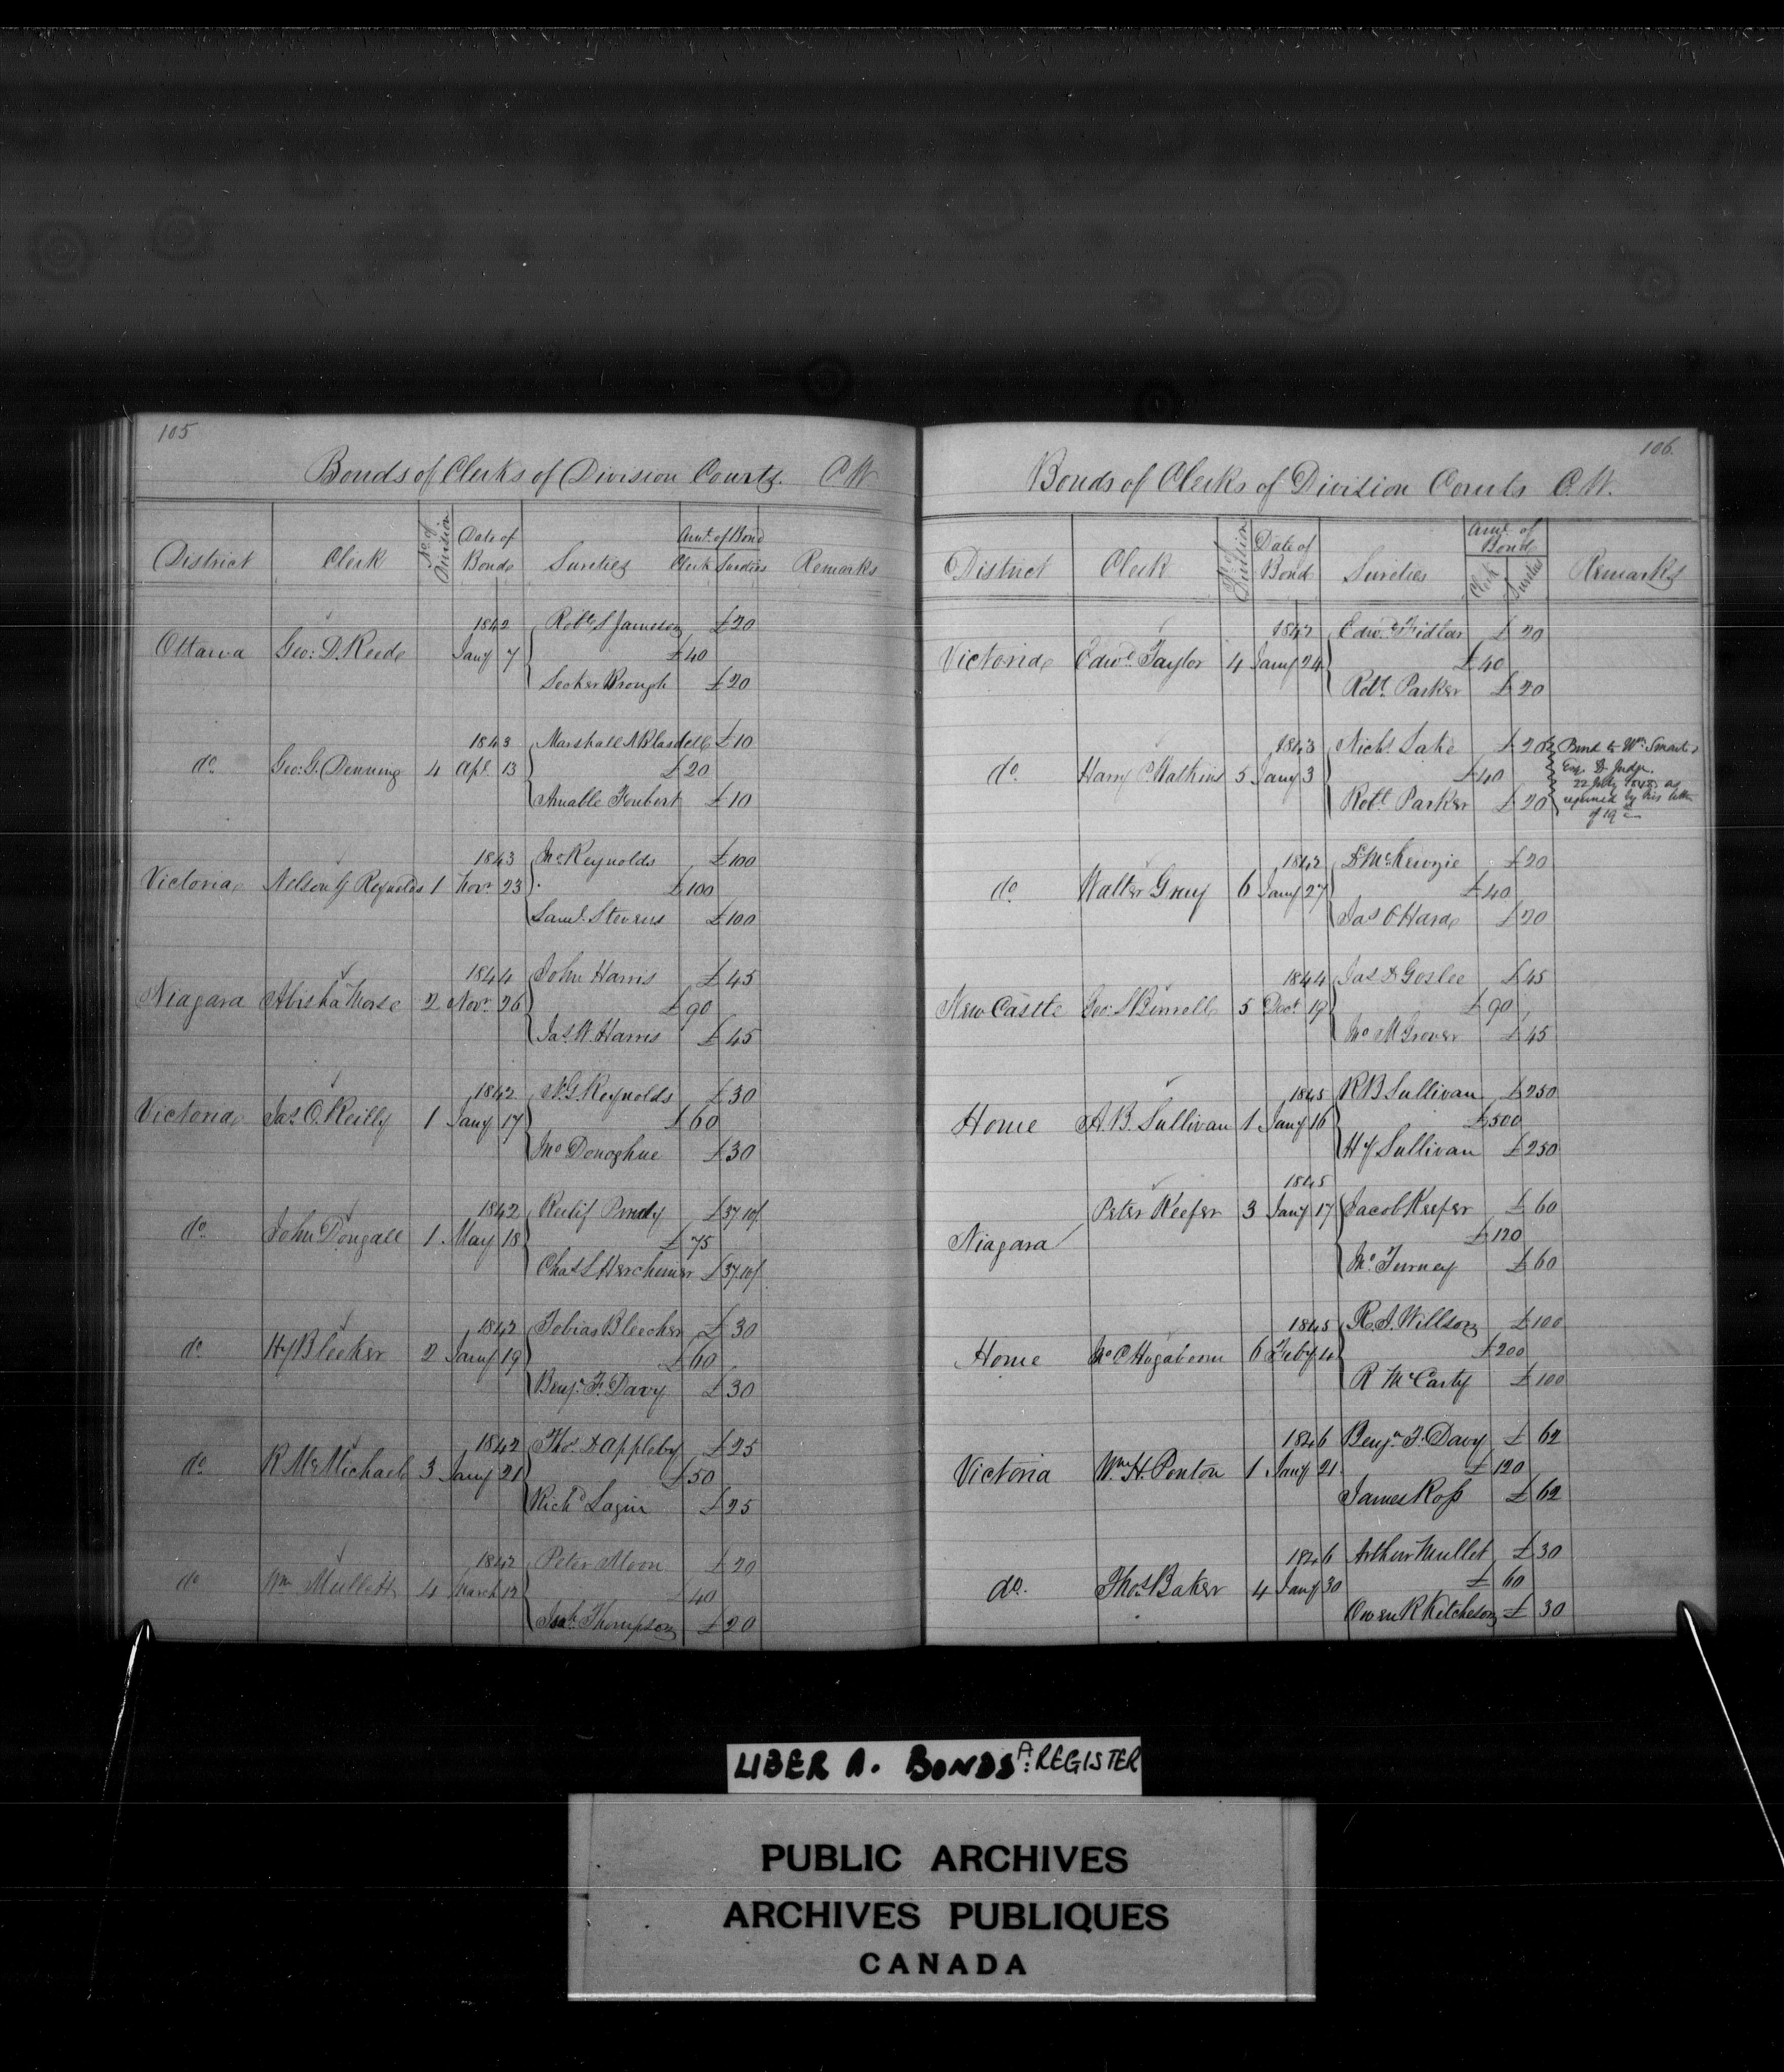 105
Bonds of Clerks of Division Courts. C W
District Clerk No. of Division Date of Bond Sureties Amt. of Bond Clerk Sureties Remarks
1842 Robt. S Jameson £20
Ottawa Geo: D. Reed Jany 7 £40
Secker Brough £20
1843 Marshall N Blasdell £10
do. Geo: G. Denning 4 Apl. 13 £20
Amable Foubert £10
1843 Jno Reynolds £100
Victoria Nelson G Reynolds 1 Novr. 23 £100
Saml. Stevens £100
1844 John Harris £45
Niagara Abisha Morse 2 Novr. 26 £90
Jas. W. Harris £45
1842 N. G. Reynolds £30
Victoria Jas. O. Reilly 1 Jany 17 £60
Jno Donoghue £30
1842 Rulif Purdy £37.10/
do John Dougall 1 May 18 £75
Chas. L Herchimer £37.10/
1842 Tobias Bleecker £30
do Hy Bleeker 2 Jany 19 £60
Benjn. F. Davy £30
1842 Thos. D Appleby £25
do R McMichael 3 Jany 21 £50
Richd. Lazier £25
1842 Peter Moon £20
do Wm Mullett 4 March 12 £40
Thompson £20
106.
Bonds of Clerks of Division Courts C. W.
District Clerk No. of Division Date of Bond Sureties Amt. of Bond Clerk Sureties Remarks
1842 Edwd. Fidlar £20
Victoria Edwd. Taylor 4 Jany 24 £40
Robt. Parker £20
1843 Nichs. Lake £20
do. Harry C Watkins 5 Jany 3 £40
Robt. Parker £20
Bond to Wm. Smart
Esq. D. Judge.
22 July 1845. as
required by his letter
of 19th
1842 D. McKenzie £20
do. Walter Grey 6 Jany 27 £40
Jas O'Hara £20
1844 Jas D Goslee £45
New Castle Geo. S Burrell 5 Decr. 19 £90
Jno M Grover £45
1845 R B Sullivan £250
Home A. B. Sullivan 1 Jany 16 £500
Hy Sullivan £250
1845
Peter Keefer 3 Jany 17 Jacob Keefer £60
Niagara £120
Jno. Turney £60
1845 R. J. Willson £100
Home Jno C Hogaboom 6 Feby 4 £200
R McCarty £100
1846 Benjn. F. Davy £62
Victoria Wm. H. Ponton 1 Jany 21 £120
James Ross £62
1846 Arthur Mullet £30
do. Thos. Baker 4 Jany 30 £60
Owen R Ketcheson £30
LIBER A. BONDS A: REGISTER
PUBLIC ARCHIVES
ARCHIVES PUBLIQUES
CANADA